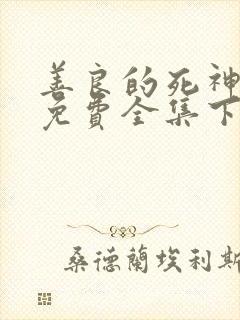 善良的死神
免費全集下
桑德蘭埃利斯